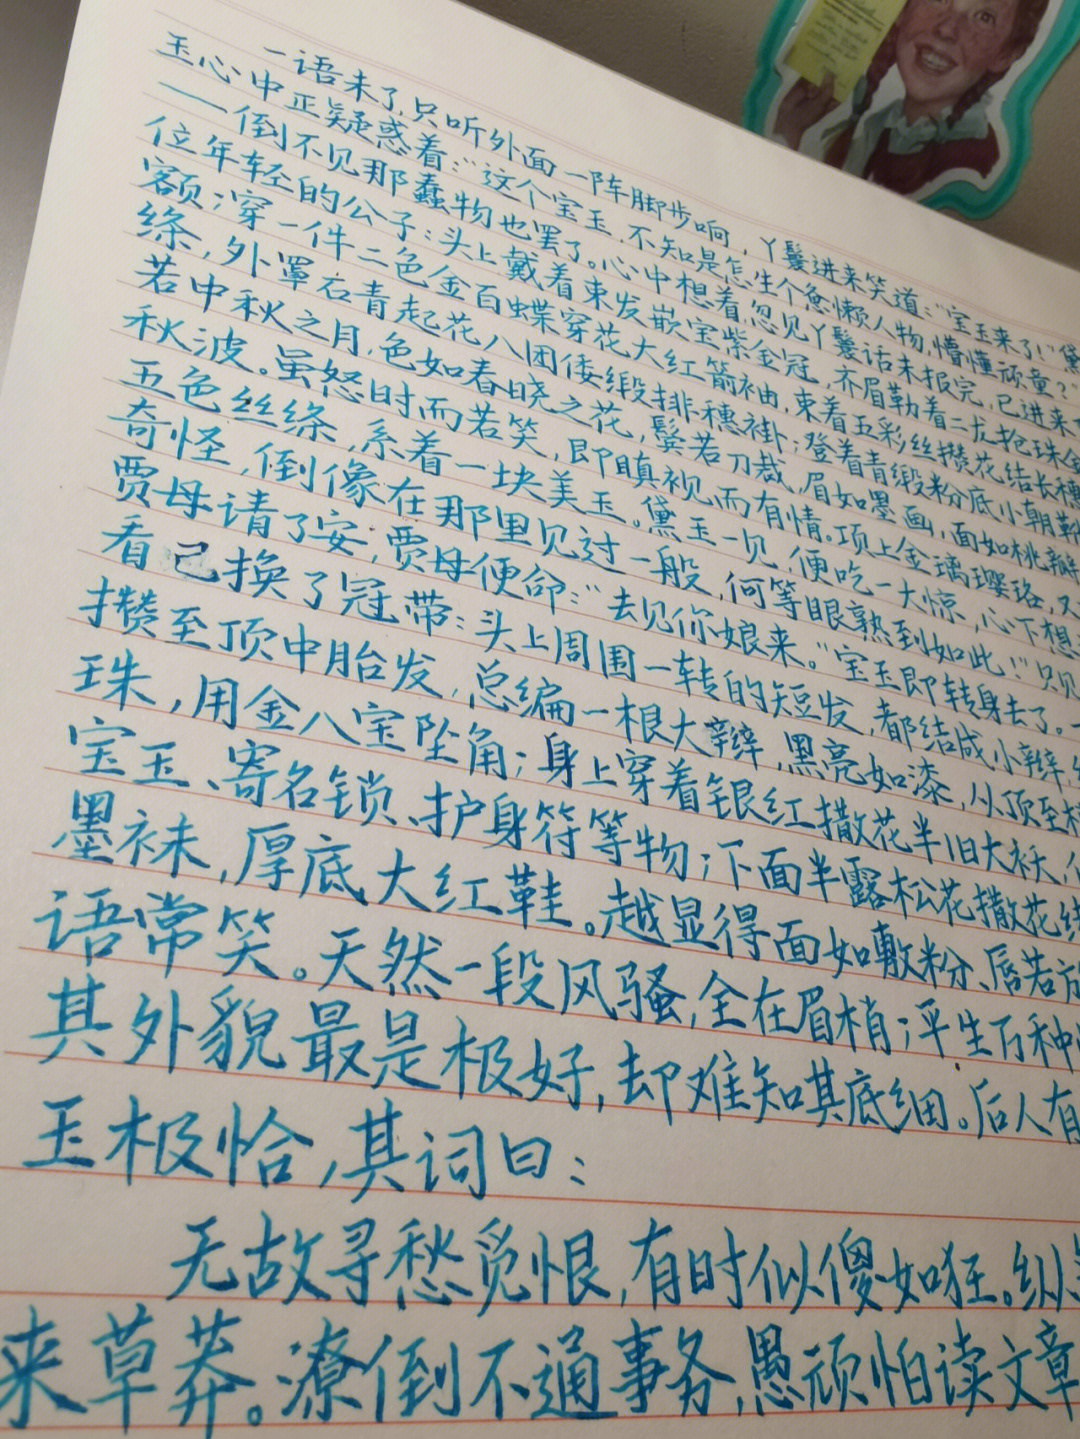 一语未了,只听外面一阵脚步响,丫鬟进来笑道:“宝玉来了!”黛
玉心中正疑惑着:“这个宝玉,不知是怎生个惫懒人物,懵懂顽童?”
——倒不见那蠢物也罢了。心中想着,忽见丫鬟话未报完,已进来
位年轻的公子:头上戴着束发嵌宝紫金冠,齐眉勒着二龙抢珠金
额;穿一件二色金百蝶穿花大红箭袖,束着五彩丝攒花结长穗
绦,外罩石青起花八团倭缎排穗褂;登着青缎粉底小朝靴
若中秋之月,色如春晓之花,鬓若刀裁,眉如墨画,面如桃瓣
秋波。虽怒时而若笑,即瞋视而有情。项上金璃璎珞,又
五色丝绦,系着一块美玉。黛玉一见,便吃一大惊,心下想
奇怪,倒像在那里见过一般,何等眼熟到如此!”只见
贾母请了安,贾母便命:“去见你娘来。”宝玉即转身去了。一
看已换了冠带:头上周围一转的短发,都结成小辫
攒至顶中胎发,总编一根大辫,黑亮如漆,从顶至
珠,用金八宝坠角;身上穿着银红撒花半旧大袄,
宝玉、寄名锁、护身符等物;下面半露松花撒花
墨袜,厚底大红鞋。越显得面如敷粉、唇若
语常笑。天然一段风骚,全在眉梢;平生万种
其外貌最是极好,却难知其底细。后人有
玉极恰,其词曰:
无故寻愁觅恨,有时似傻如狂。纵
来草莽。潦倒不通事务,愚顽怕读文章